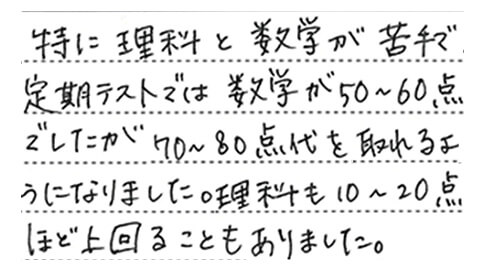 特に理科と数学が苦手で
定期テストでは数学が50~60点
でしたが70~80点代を取れるよ
うになりました。理科も10~20点
ほど上回ることもありました。